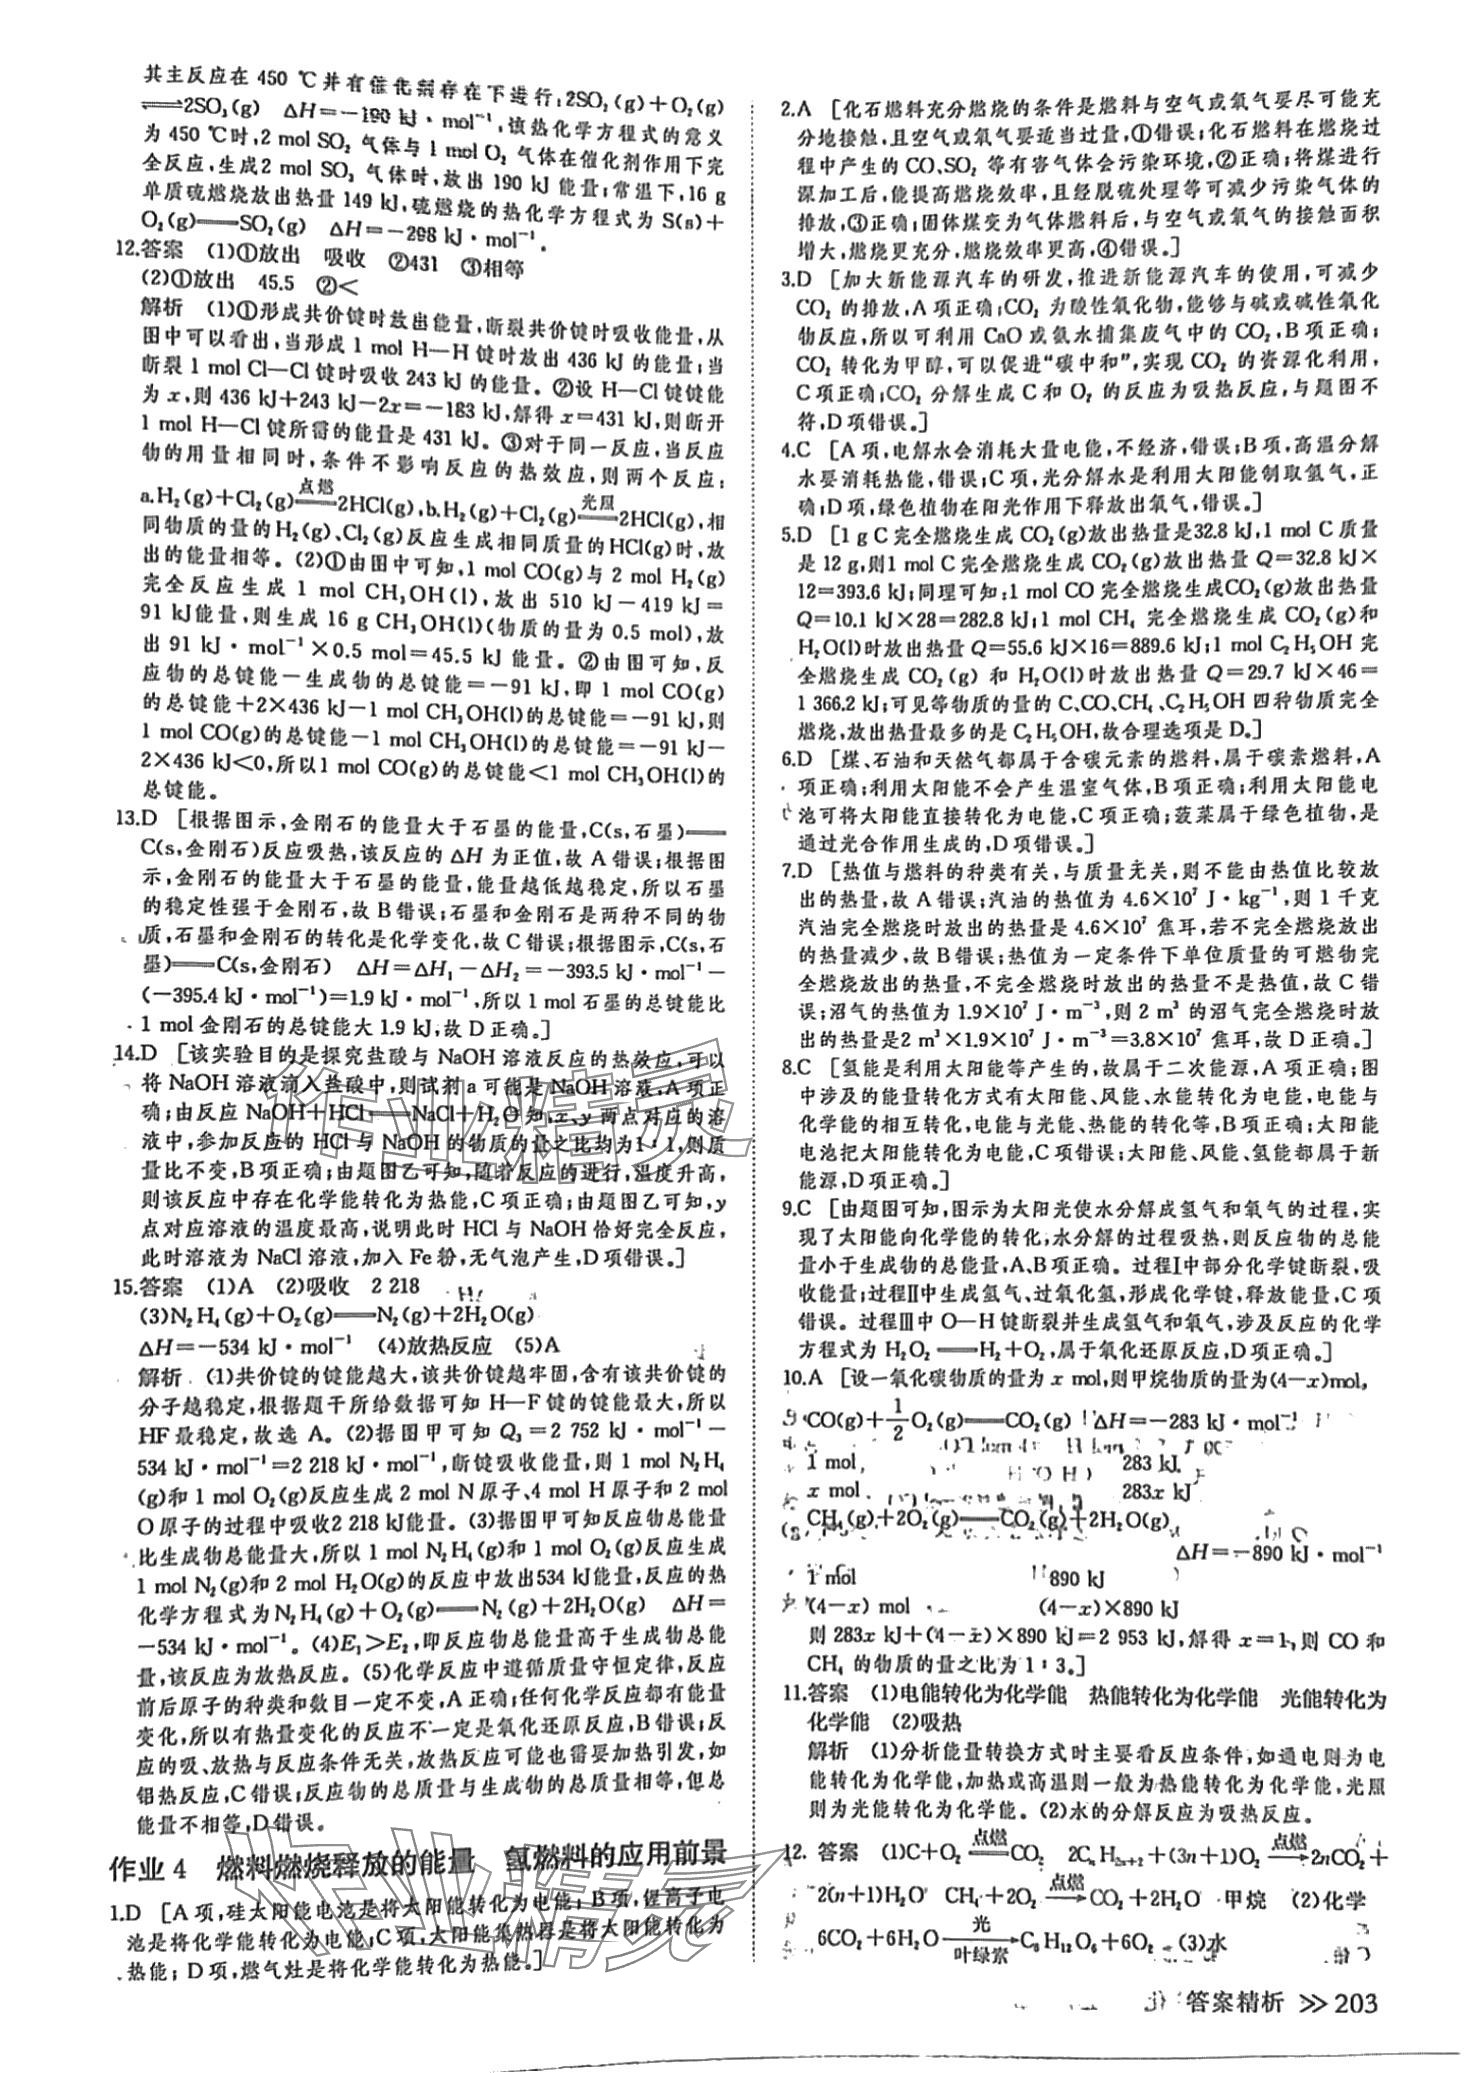 其主反应在 450 ℃并有催化剂存在下进行:2SO₂(g)+O₂(g)
⇌2SO₃(g)　ΔH=-190 kJ·mol⁻¹,该热化学方程式的意义
为 450 ℃时,2 mol SO₂ 气体与 1 mol O₂ 气体在催化剂作用下完
全反应,生成2 mol SO₃ 气体时,放出 190 kJ 能量;常温下,16 g
单质硫燃烧放出热量 149 kJ,硫燃烧的热化学方程式为 S(s)+
O₂(g)══SO₂(g)　ΔH=-298 kJ·mol⁻¹。
12.答案　(1)①放出　吸收　②431　③相等
(2)①放出　45.5　②<
解析　(1)①形成共价键时放出能量,断裂共价键时吸收能量,从
图中可以看出,当形成 1 mol H—H 键时放出 436 kJ 的能量;当
断裂 1 mol Cl—Cl 键时吸收 243 kJ 的能量。②设 H—Cl 键键能
为 x,则 436 kJ+243 kJ-2x=-183 kJ,解得 x=431 kJ,则断开
1 mol H—Cl 键所需的能量是 431 kJ。③对于同一反应,当反应
物的用量相同时,条件不影响反应的热效应,则两个反应:
a.H₂(g)+Cl₂(g)═点燃═2HCl(g),b.H₂(g)+Cl₂(g)═光照═2HCl(g),相
同物质的量的H₂(g)、Cl₂(g)反应生成相同质量的HCl(g)时,放
出的能量相等。(2)①由图中可知,1 mol CO(g)与 2 mol H₂(g)
完全反应生成 1 mol CH₃OH(l),放出 510 kJ-419 kJ=
91 kJ能量,则生成 16 g CH₃OH(l)(物质的量为 0.5 mol),放
出 91 kJ·mol⁻¹×0.5 mol=45.5 kJ 能量。②由图可知,反
应物的总键能-生成物的总键能=-91 kJ,即 1 mol CO(g)
的总键能+2×436 kJ-1 mol CH₃OH(l)的总键能=-91 kJ,则
1 mol CO(g)的总键能-1 mol CH₃OH(l)的总键能=-91 kJ-
2×436 kJ<0,所以1 mol CO(g)的总键能<1 mol CH₃OH(l)的
总键能。
13.D　[根据图示,金刚石的能量大于石墨的能量,C(s,石墨)══
C(s,金刚石)反应吸热,该反应的 ΔH 为正值,故 A 错误;根据图
示,金刚石的能量大于石墨的能量,能量越低越稳定,所以石墨
的稳定性强于金刚石,故 B 错误;石墨和金刚石是两种不同的物
质,石墨和金刚石的转化是化学变化,故 C 错误;根据图示,C(s,石
墨)══C(s,金刚石)　ΔH=ΔH₁-ΔH₂=-393.5 kJ·mol⁻¹-
(-395.4 kJ·mol⁻¹)=1.9 kJ·mol⁻¹,所以 1 mol 石墨的总键能比
1 mol 金刚石的总键能大 1.9 kJ,故 D 正确。]
14.D　[该实验目的是探究盐酸与 NaOH 溶液反应的热效应,可以
将 NaOH 溶液滴入盐酸中,则试剂 a 可能是 NaOH 溶液,A 项正
确;由反应 NaOH+HCl══NaCl+H₂O 知,x、y 两点对应的溶
液中,参加反应的 HCl 与 NaOH 的物质的量之比均为1∶1,则质
量比不变,B 项正确;由题图乙可知,随着反应的进行,温度升高,
则该反应中存在化学能转化为热能,C 项正确;由题图乙可知,y
点对应溶液的温度最高,说明此时 HCl 与 NaOH 恰好完全反应,
此时溶液为 NaCl 溶液,加入 Fe 粉,无气泡产生,D 项错误。]
15.答案　(1)A　(2)吸收　2 218
(3)N₂H₄(g)+O₂(g)══N₂(g)+2H₂O(g)
ΔH=-534 kJ·mol⁻¹　(4)放热反应　(5)A
解析　(1)共价键的键能越大,该共价键越牢固,含有该共价键的
分子越稳定,根据题干所给数据可知 H—F 键的键能最大,所以
HF 最稳定,故选 A。(2)据图甲可知 Q₃=2 752 kJ·mol⁻¹-
534 kJ·mol⁻¹=2 218 kJ·mol⁻¹,断键吸收能量,则 1 mol N₂H₄
(g)和 1 mol O₂(g)反应生成 2 mol N 原子、4 mol H 原子和 2 mol
O 原子的过程中吸收2 218 kJ能量。(3)据图甲可知反应物总能量
比生成物总能量大,所以 1 mol N₂H₄(g)和 1 mol O₂(g)反应生成
1 mol N₂(g)和 2 mol H₂O(g)的反应中放出534 kJ能量,反应的热
化学方程式为N₂H₄(g)+O₂(g)══N₂(g)+2H₂O(g)　ΔH=
-534 kJ·mol⁻¹。(4)E₁>E₂,即反应物总能量高于生成物总能
量,该反应为放热反应。(5)化学反应中遵循质量守恒定律,反应
前后原子的种类和数目一定不变,A 正确;任何化学反应都有能量
变化,所以有热量变化的反应不一定是氧化还原反应,B 错误;反
应的吸、放热与反应条件无关,放热反应可能也需要加热引发,如
铝热反应,C 错误;反应物的总质量与生成物的总质量相等,但总
能量不相等,D 错误。
作业 4　燃料燃烧释放的能量　氢燃料的应用前景
1.D　[A 项,硅太阳能电池是将太阳能转化为电能;B 项,锂离子电
池是将化学能转化为电能;C 项,太阳能集热器是将太阳能转化为
热能;D 项,燃气灶是将化学能转化为热能。]
2.A　[化石燃料充分燃烧的条件是燃料与空气或氧气要尽可能充
分地接触,且空气或氧气要适当过量,①错误;化石燃料在燃烧过
程中产生的 CO、SO₂ 等有害气体会污染环境,②正确;将煤进行
深加工后,能提高燃烧效率,且经脱硫处理等可减少污染气体的
排放,③正确;固体煤变为气体燃料后,与空气或氧气的接触面积
增大,燃烧更充分,燃烧效率更高,④错误。]
3.D　[加大新能源汽车的研发,推进新能源汽车的使用,可减少
CO₂ 的排放,A 项正确;CO₂ 为酸性氧化物,能够与碱或碱性氧化
物反应,所以可利用 CaO 或氨水捕集废气中的 CO₂,B 项正确;
CO₂ 转化为甲醇,可以促进“碳中和”,实现 CO₂ 的资源化利用,
C 项正确;CO₂ 分解生成 C 和 O₂ 的反应为吸热反应,与题图不
符,D 项错误。]
4.C　[A 项,电解水会消耗大量电能,不经济,错误;B 项,高温分解
水要消耗热能,错误;C 项,光分解水是利用太阳能制取氢气,正
确;D 项,绿色植物在阳光作用下释放出氧气,错误。]
5.D　[1 g C 完全燃烧生成 CO₂(g)放出热量是32.8 kJ,1 mol C 质量
是 12 g,则1 mol C 完全燃烧生成 CO₂(g)放出热量 Q=32.8 kJ×
12=393.6 kJ;同理可知:1 mol CO 完全燃烧生成CO₂(g)放出热量
Q=10.1 kJ×28=282.8 kJ;1 mol CH₄ 完全燃烧生成 CO₂(g)和
H₂O(l)时放出热量 Q=55.6 kJ×16=889.6 kJ;1 mol C₂H₅OH 完
全燃烧生成 CO₂(g) 和 H₂O(l)时放出热量 Q=29.7 kJ×46=
1 366.2 kJ;可见等物质的量的 C、CO、CH₄、C₂H₅OH 四种物质完全
燃烧,放出热量最多的是 C₂H₅OH,故合理选项是 D。]
6.D　[煤、石油和天然气都属于含碳元素的燃料,属于碳素燃料,A
项正确;利用太阳能不会产生温室气体,B 项正确;利用太阳能电
池可将太阳能直接转化为电能,C 项正确;菠菜属于绿色植物,是
通过光合作用生成的,D 项错误。]
7.D　[热值与燃料的种类有关,与质量无关,则不能由热值比较放
出的热量,故 A 错误;汽油的热值为 4.6×10⁷ J·kg⁻¹,则 1 千克
汽油完全燃烧时放出的热量是 4.6×10⁷ 焦耳,若不完全燃烧放出
的热量减少,故 B 错误;热值为一定条件下单位质量的可燃物完
全燃烧放出的热量,不完全燃烧时放出的热量不是热值,故 C 错
误;沼气的热值为 1.9×10⁷ J·m⁻³,则 2 m³ 的沼气完全燃烧时放
出的热量是2 m³×1.9×10⁷ J·m⁻³=3.8×10⁷ 焦耳,故 D 正确。]
8.C　[氢能是利用太阳能等产生的,故属于二次能源,A 项正确;图
中涉及的能量转化方式有太阳能、风能、水能转化为电能,电能与
化学能的相互转化,电能与光能、热能的转化等,B 项正确;太阳能
电池把太阳能转化为电能,C 项错误;太阳能、风能、氢能都属于新
能源,D 项正确。]
9.C　[由题图可知,图示为太阳光使水分解成氢气和氧气的过程,实
现了太阳能向化学能的转化;水分解的过程吸热,则反应物的总能
量小于生成物的总能量,A、B 项正确。过程Ⅰ中部分化学键断裂,吸
收能量;过程Ⅱ中生成氢气、过氧化氢,形成化学键,释放能量,C 项
错误。过程Ⅲ中 O—H 键断裂并生成氢气和氧气,涉及反应的化学
方程式为 H₂O₂══H₂+O₂,属于氧化还原反应,D 项正确。]
10.A　[设一氧化碳物质的量为 x mol,则甲烷物质的量为(4-x)mol,
CO(g)+1/2 O₂(g)══CO₂(g)　ΔH=-283 kJ·mol⁻¹
1 mol　283 kJ
x mol　283x kJ
CH₄(g)+2O₂(g)══CO₂(g)+2H₂O(g)
ΔH=-890 kJ·mol⁻¹
1 mol　890 kJ
(4-x) mol　(4-x)×890 kJ
则 283x kJ+(4-x)×890 kJ=2 953 kJ,解得 x=1,则 CO 和
CH₄ 的物质的量之比为 1∶3。]
11.答案　(1)电能转化为化学能　热能转化为化学能　光能转化为
化学能　(2)吸热
解析　(1)分析能量转换方式时主要看反应条件,如通电则为电
能转化为化学能,加热或高温则一般为热能转化为化学能,光照
则为光能转化为化学能。(2)水的分解反应为吸热反应。
12. 答案　(1)C+O₂═点燃═CO₂　2CₙH₂ₙ₊₂+(3n+1)O₂—点燃→2nCO₂+
2(n+1)H₂O　CH₄+2O₂—点燃→CO₂+2H₂O　甲烷　(2)化学
6CO₂+6H₂O—光/叶绿素→C₆H₁₂O₆+6O₂　(3)水
答案精析 ≫ 203
作业精灵
作业精灵